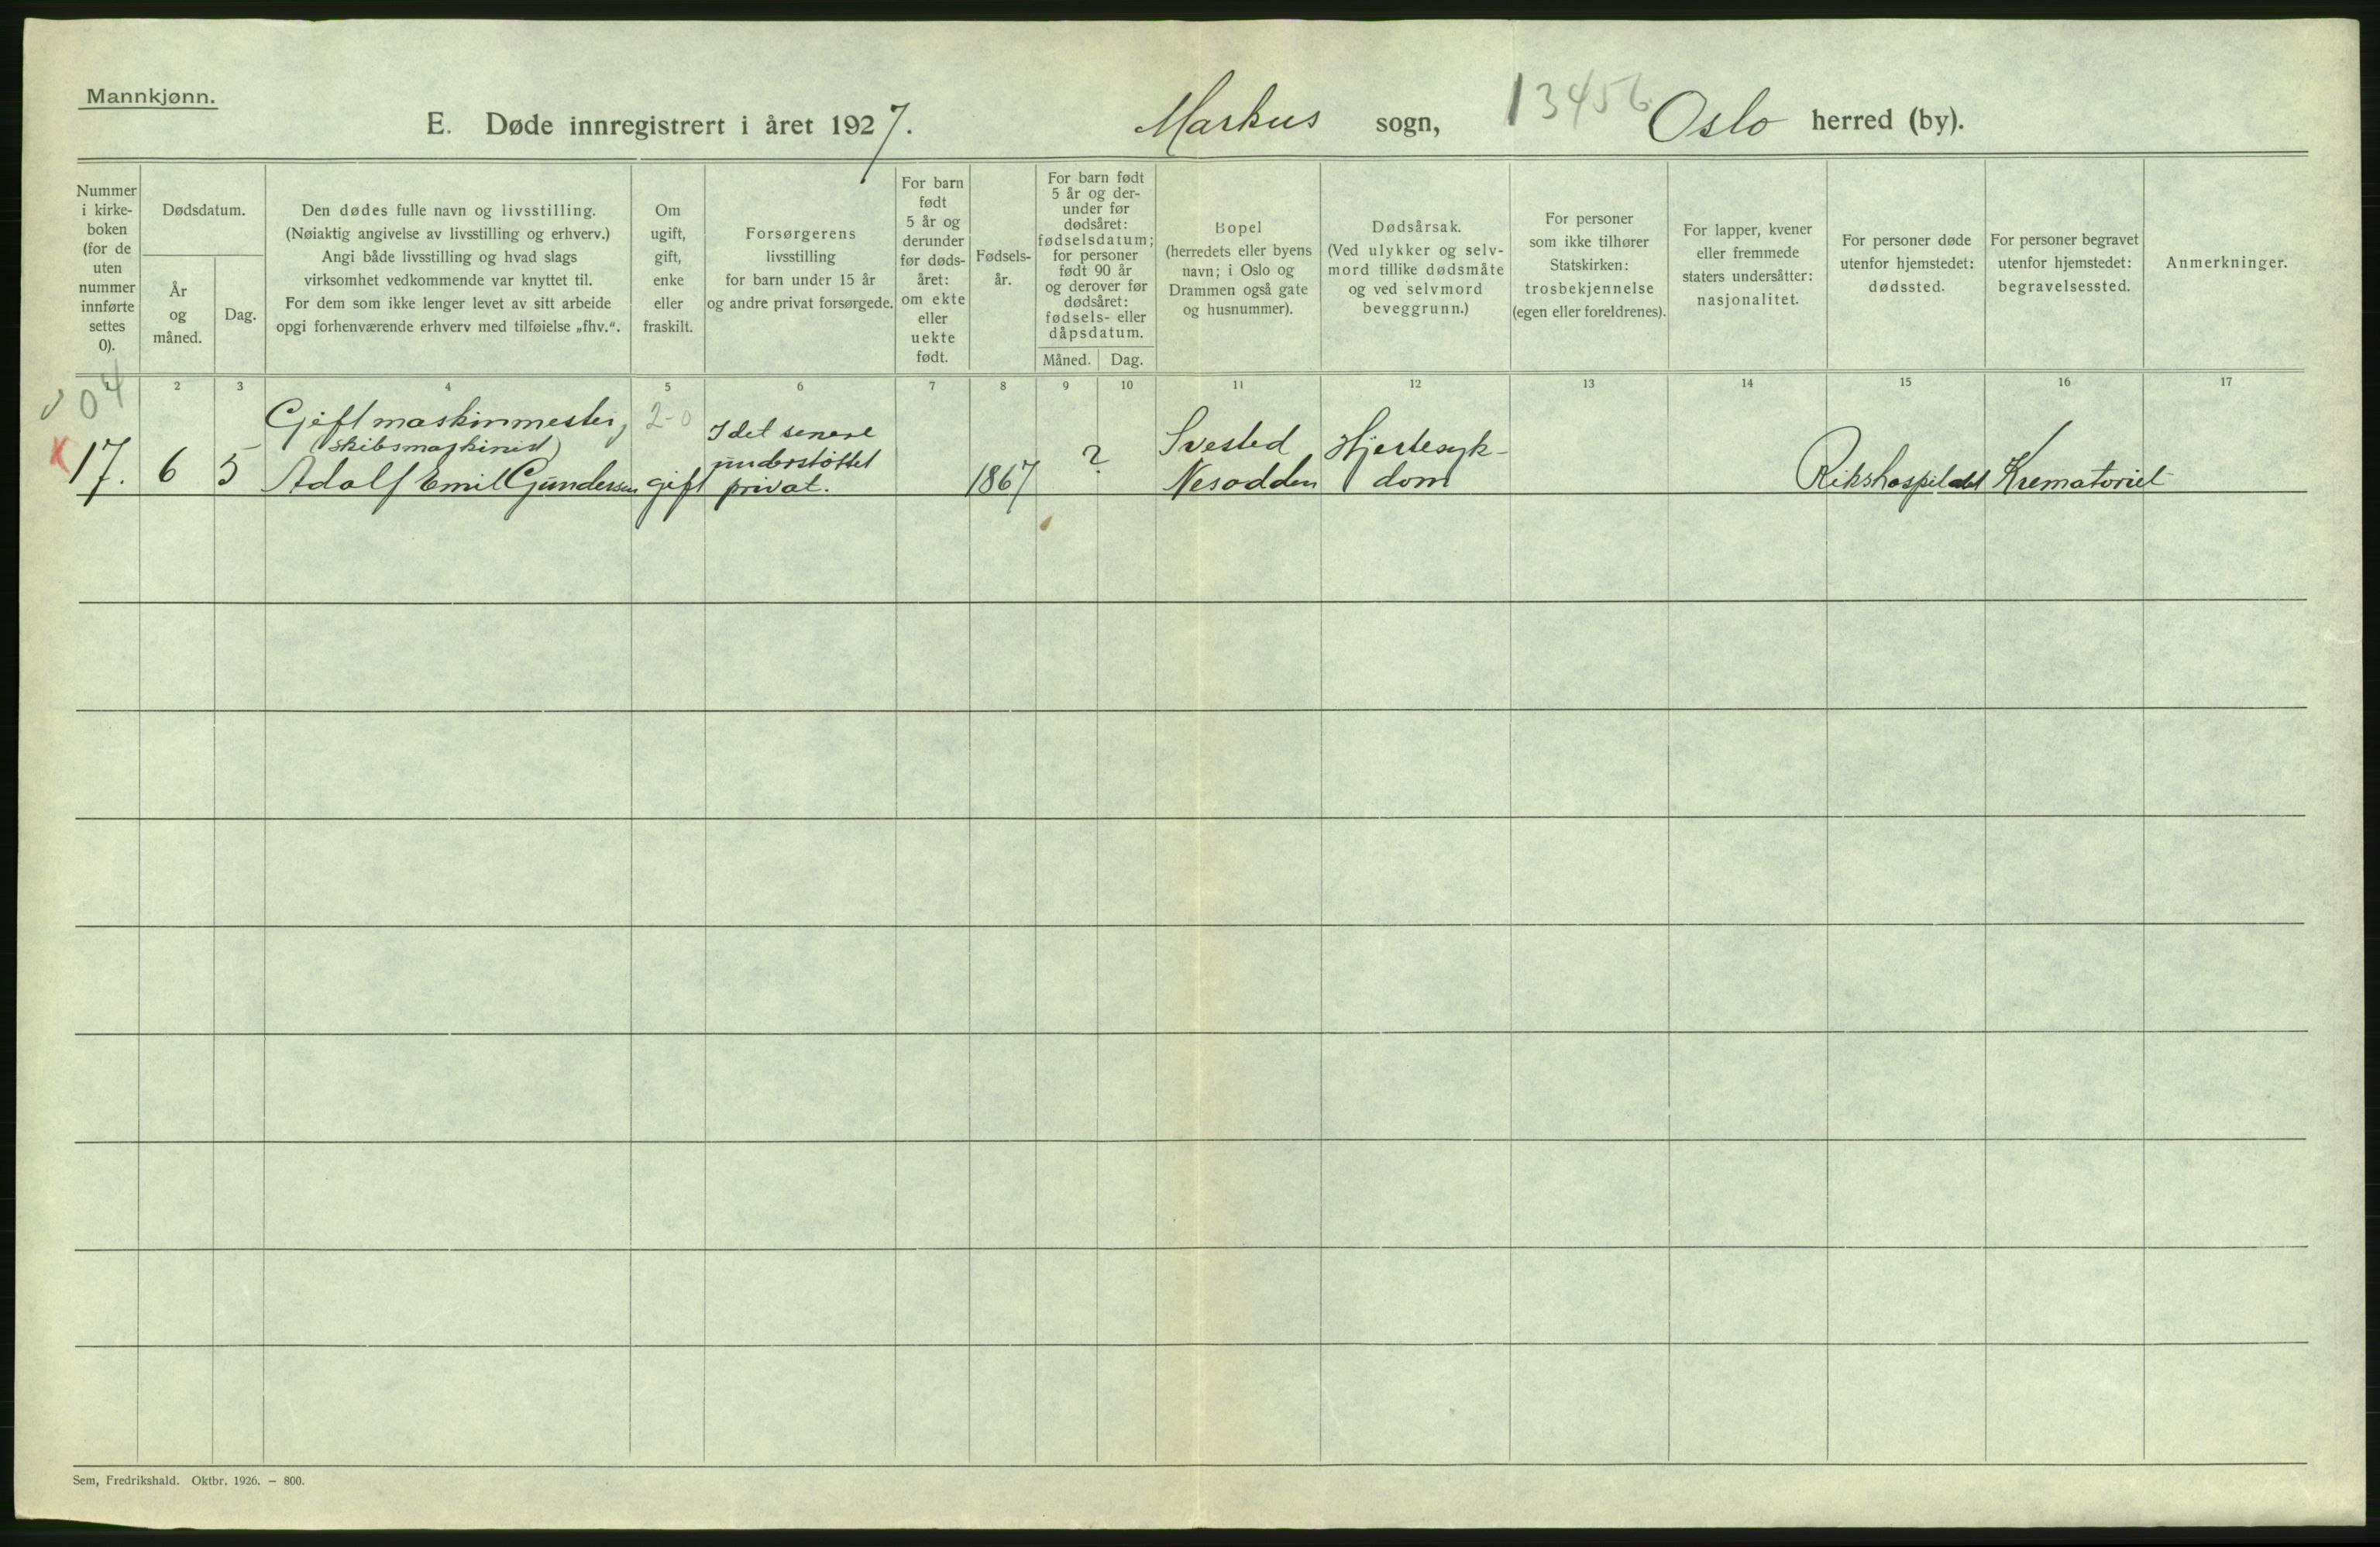 Mannkjønn.
E. Døde innregistrert i året 1927. Markus sogn, 13456 Oslo herred (by).
Nummer
i kirke-
boken
(for de
uten
nummer
innførte
settes
0).
Dødsdatum.
År
og
måned.
Dag.
Den dødes fulle navn og livsstilling.
(Nøiaktig angivelse av livsstilling og erhverv.)
Angi både livsstilling og hvad slags
virksomhet vedkommende var knyttet til.
For dem som ikke lenger levet av sitt arbeide
opgi forhenværende erhverv med tilføielse „fhv.“.
Om
ugift,
gift,
enke
eller
fraskilt.
Forsørgerens
livsstilling
for barn under 15 år
og andre privat forsørgede.
For barn
født
5 år og
derunder
før døds-
året:
om ekte
eller
uekte
født.
Fødsels-
år.
For barn født
5 år og der-
under før
dødsåret:
fødselsdatum;
for personer
født 90 år
og derover før
dødsåret:
fødsels- eller
dåpsdatum.
Måned. Dag.
Bopel
(herredets eller byens
navn; i Oslo og
Drammen også gate
og husnummer).
Dødsårsak.
(Ved ulykker og selv-
mord tillike dødsmåte
og ved selvmord
beveggrunn.)
For personer
som ikke tilhører
Statskirken:
trosbekjennelse
(egen eller foreldrenes).
For lapper, kvener
eller fremmede
staters undersåtter:
nasjonalitet.
For personer døde
utenfor hjemstedet:
dødssted.
For personer begravet
utenfor hjemstedet:
begravelsessted.
Anmerkninger.
2 3 4 5 6 7 8 9 10 11 12 13 14 15 16 17
04
17. 6 5
Gift maskinmester,
(skibsmaskinist)
Adolf Emil Gundersen
2-0
gift
I det senere
understøttet
privat.
1867
?
Svested
Nesodden
Hjertesyk-
dom
Rikshospitalet
Krematoriet
Sem, Fredrikshald. Oktbr. 1926. — 800.